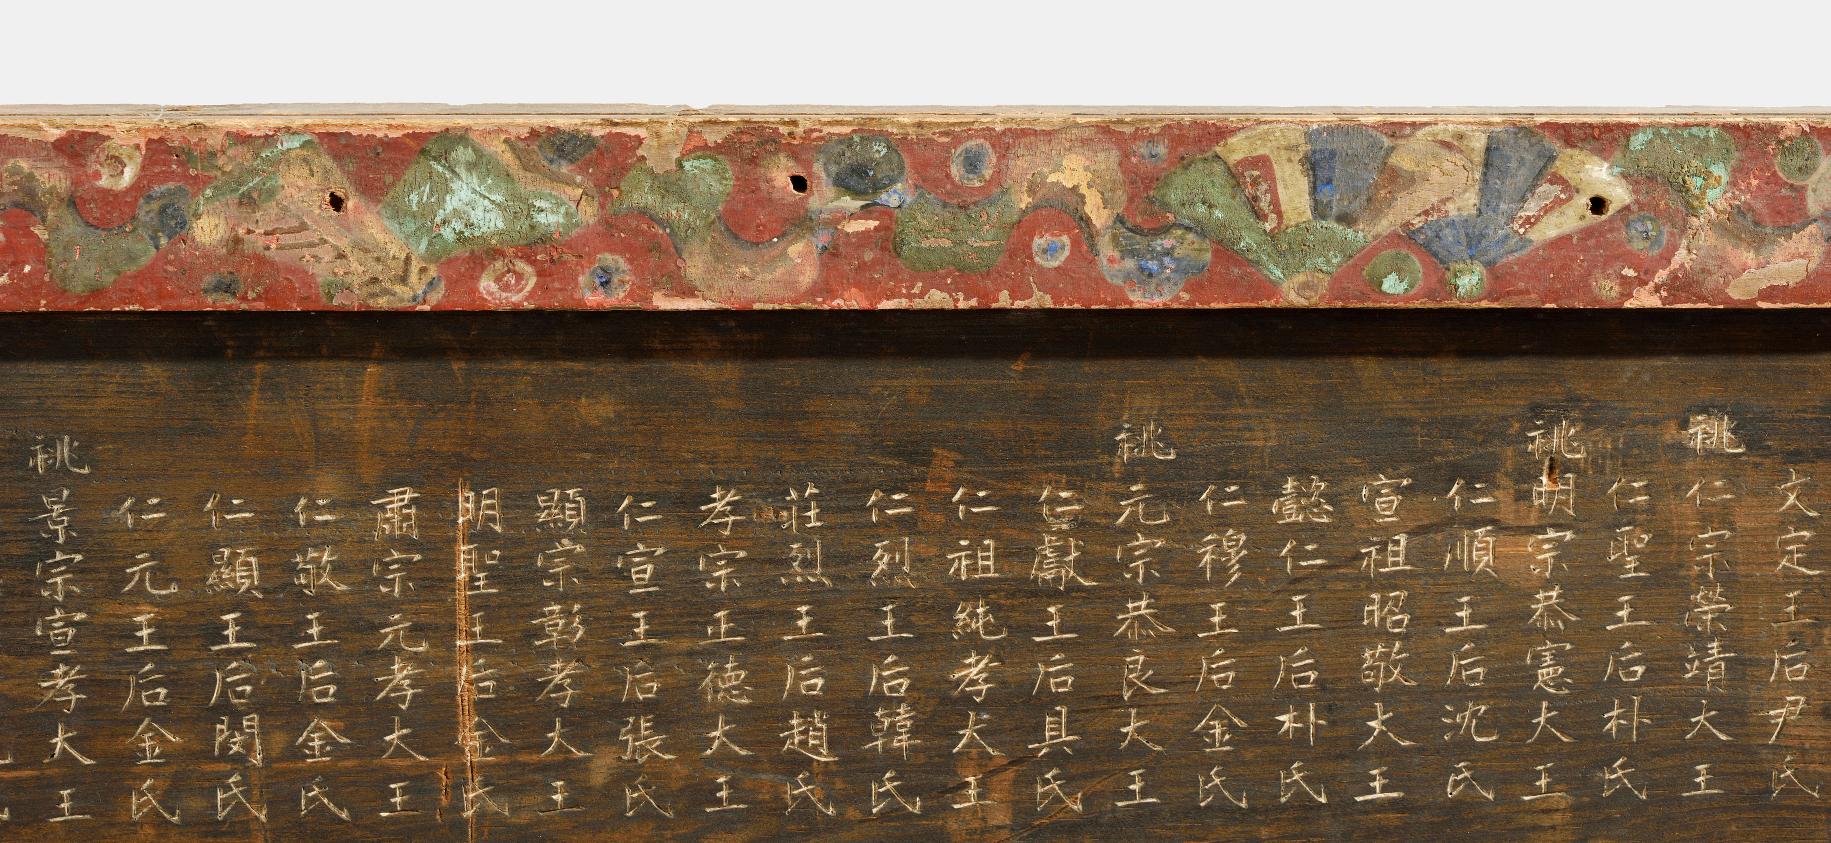 文定王后尹氏
祧仁宗榮靖大王
仁聖王后朴氏
祧明宗恭憲大王
仁順王后沈氏
宣祖昭敬大王
懿仁王后朴氏
仁穆王后金氏
祧元宗恭良大王
仁獻王后具氏
仁祖純孝大王
仁烈王后韓氏
莊烈王后趙氏
孝宗正德大王
仁宣王后張氏
顯宗彰孝大王
明聖王后金氏
肅宗元孝大王
仁敬王后金氏
仁顯王后閔氏
仁元王后金氏
祧景宗宣孝大王